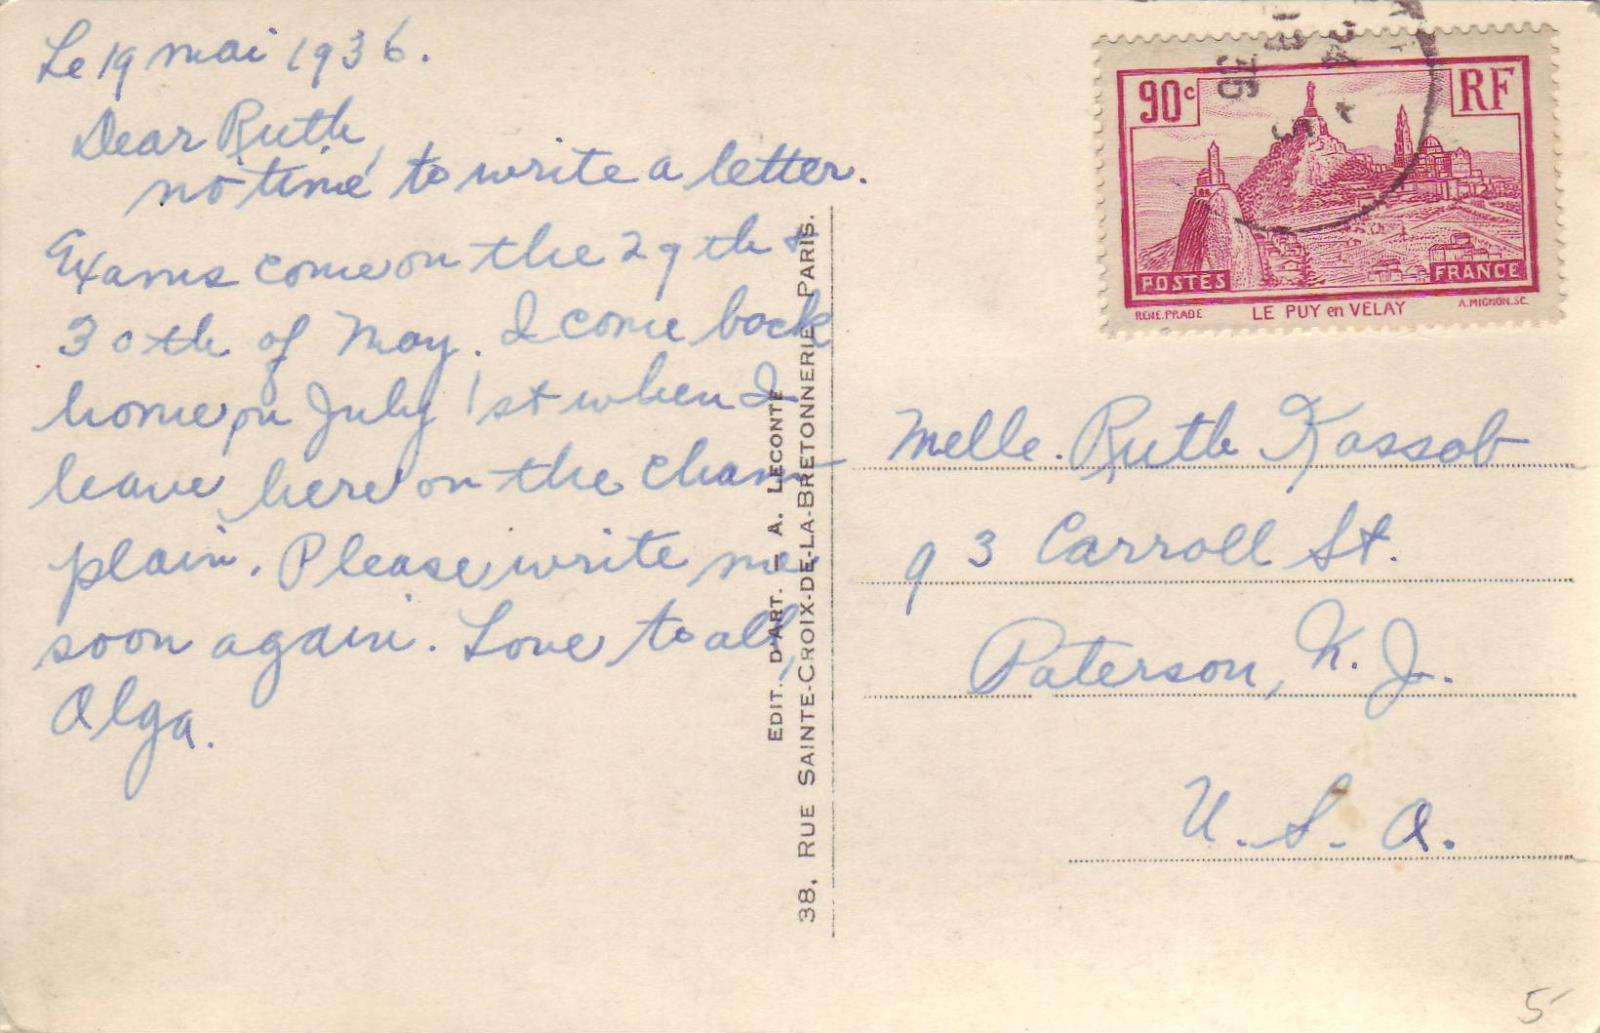 Le 19 mai 1936.
Dear Ruth,
no time to write a letter.
Exams come on the 29th &
30th of May. I come back
home on July 1st when I
leave here on the Cham-
plain. Please write me
soon again. Love to all,
Olga.
EDIT. D'ART. – A. LECONTE
38, RUE SAINTE-CROIX-DE-LA-BRETONNERIE, PARIS.
90c RF
POSTES FRANCE
RENÉ.PRADE LE PUY en VELAY A.MIGNON.SC.
36
Melle. Ruth Kassab
93 Carroll St.
Paterson, N.J.
U.S.A.
5